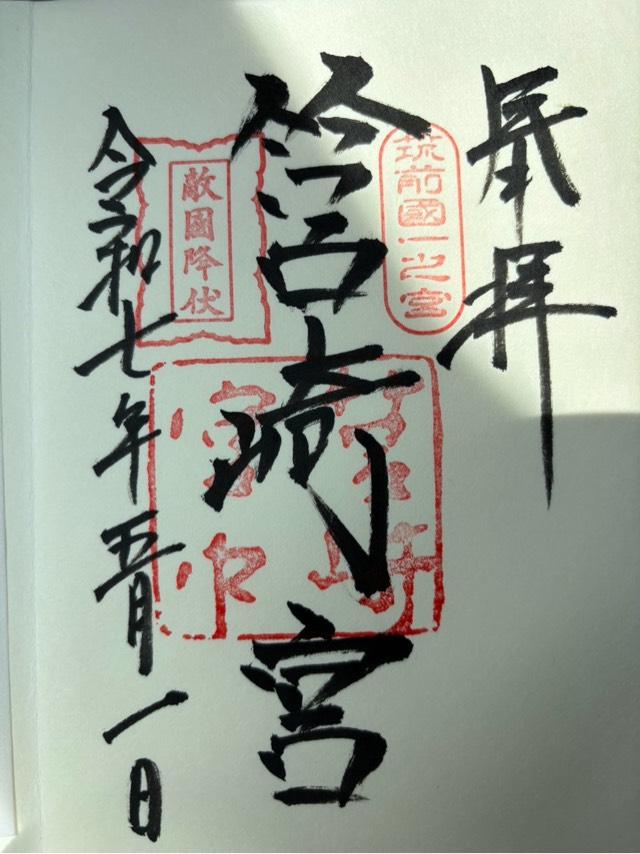 奉拝
筑前國一之宮
筥崎宮
敵國降伏
令和七年五月一日